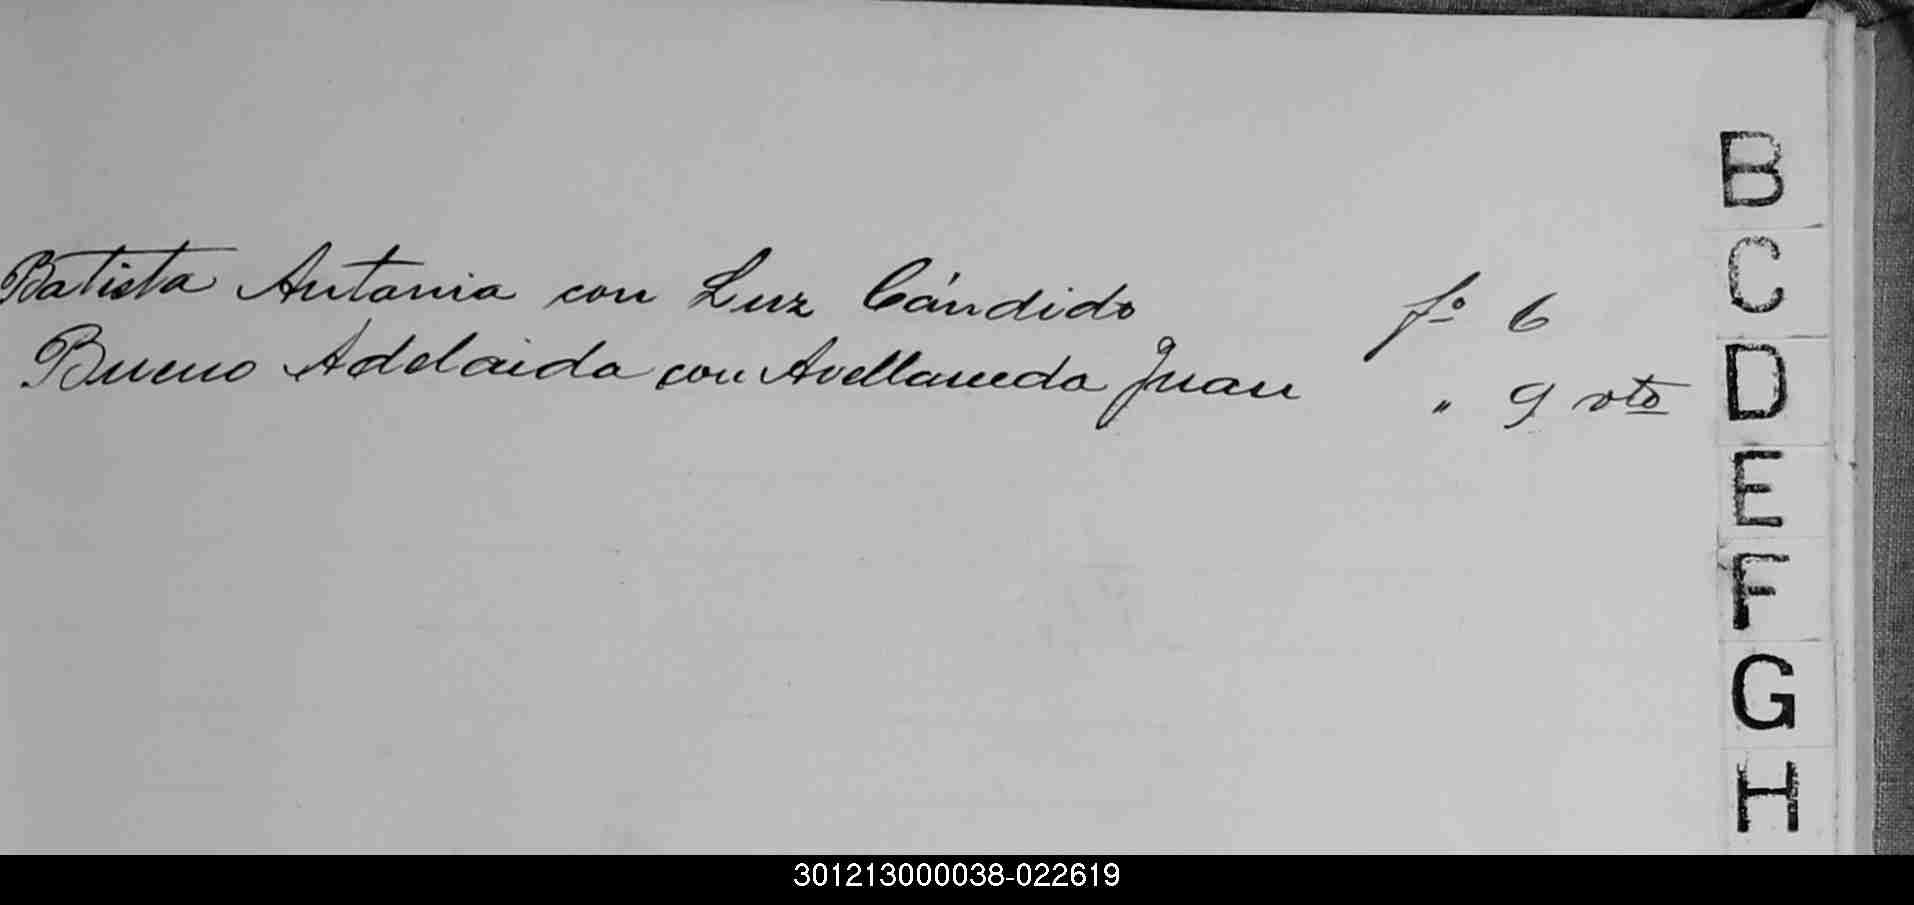 Batista Antonia con Luz Cándido fº 6
Bueno Adelaida con Avellaneda Juan " 9 vto
B
C
D
E
F
G
H
301213000038-022619